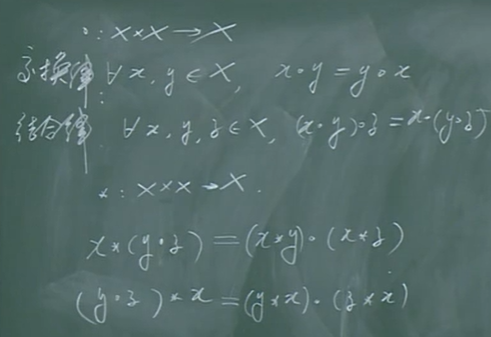 ∘: X×X→X
交换律: ∀x,y∈X, x∘y=y∘x
结合律: ∀x,y,z∈X, (x∘y)∘z=x∘(y∘z)
*: X×X→X.
x*(y∘z)=(x*y)∘(x*z)
(y∘z)*x=(y*x)∘(z*x)